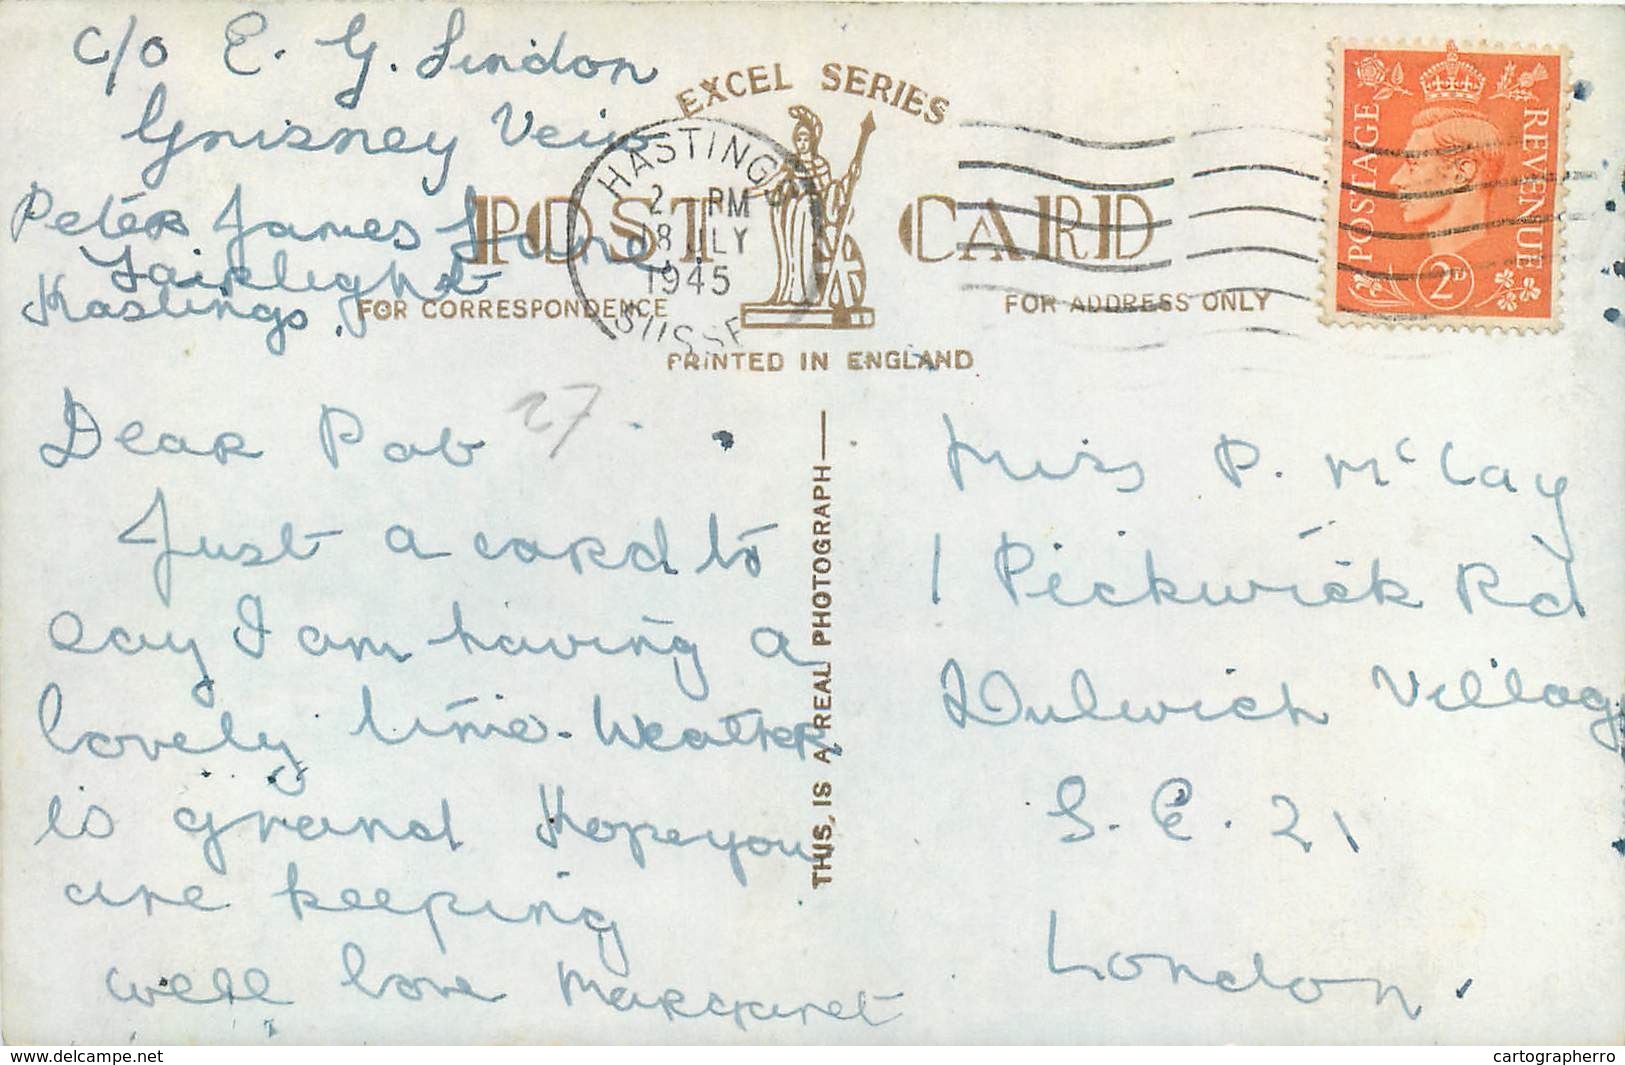 c/o E. G. Lindon
Grisney View
Peter James Lane
Fairlight
Hastings.
EXCEL SERIES
POST CARD
FOR CORRESPONDENCE
FOR ADDRESS ONLY
PRINTED IN ENGLAND
HASTINGS
2 PM
18 JLY
1945
SUSSE
POSTAGE
REVENUE
2D
27
Dear Pat
Just a card to
say I am having a
lovely time. Weather
is grand Hope you
are keeping
well love Margaret
THIS IS A REAL PHOTOGRAPH
Miss P. McCay
1 Pickwick Rd
Dulwich Village
S. E. 21
London.
www.delcampe.net
cartographerro